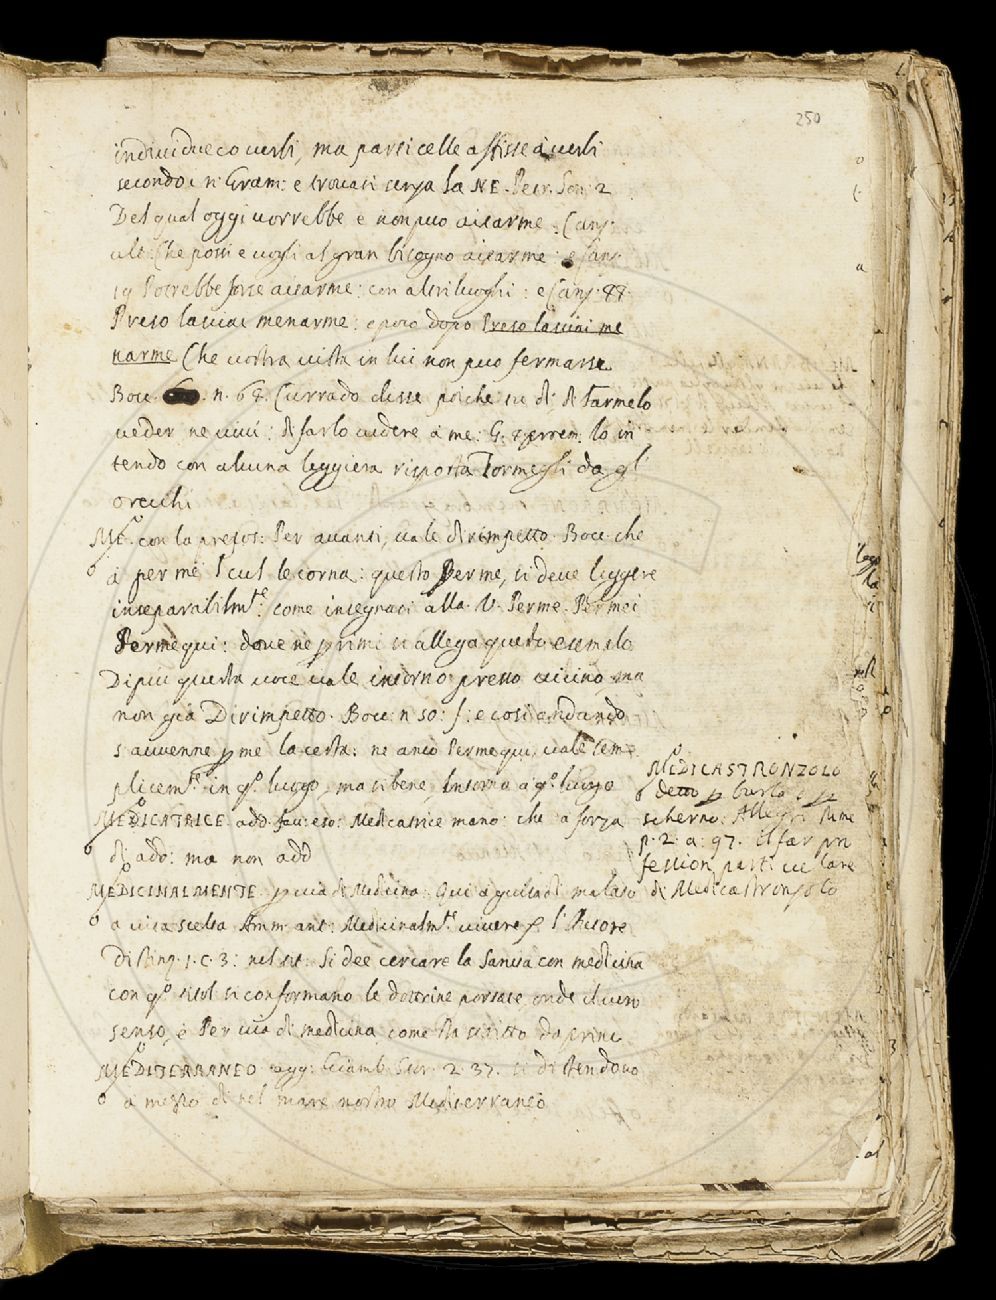 250
individue co verbi, ma particelle affisse à verbi
secondo i n: Gram: e trovati senza la NE. Petr. Son: 2
Del qual oggi vorrebbe e non puo aitarme. Canz:
ult: Che possi e vogli al gran bisogno aitarme: e Canz:
19 Potrebbe forse aitarme: con altri luoghi: e Canz. 88.
Preso lasciai menarme: e poco dopo Preso lasciai me
narme Che vostra vista in lui non puo fermarse
Bocc. n. 68. Currado disse poiche tu di di farmelo
veder ne vivi: di farlo vedere à me: G. 7 prrem. lo in
tendo con alcuna leggiera risposta tormegli da gl'
orecchi
ME. con la prepos: Per avanti, vale dirimpetto. Bocc. che
à per me l cul le corna: questo Perme, si deve leggere
inseparabilmte: come insegnasi alla. V. Perme. Permei
Permèqui: dove nè primi si allega questo esemplo
Di piu questa voce vale intorno presso vicino, ma
non già Dirimpetto. Bocc: n 50: f: e così andando
s'avvenne p me la cesta: ne anco Permequi, vale sem
plicemte in qo luogo, ma si bene, Intorno a qo luogo
MEDICATRICE. add. fem: eso: Medicatrice mano: che a forza
di add: ma non add
MEDICINALMENTE. p via di Medicina. Qui a guisa di malato
a vita scelta Amm. ant: Medicinalmte vivere
Dist inq. 1. C. 3: nel tit. Si dee cercare la Sanità con medicina
con qo titol si conformano le dottrine portate, onde il vero
senso, è Per via di medicina, come fu scritto da prima
MEDITERRANEO. agg: Giamb. Stor. 2. 37. si distendono
a mezzo dì nel mare nostro Mediterraneo
MEDICASTRONZOLO
detto p burla: e p
scherno: Allegri Rime
p. 2. a: 97. Il far pro
fession particulare
di Medicastronzolo